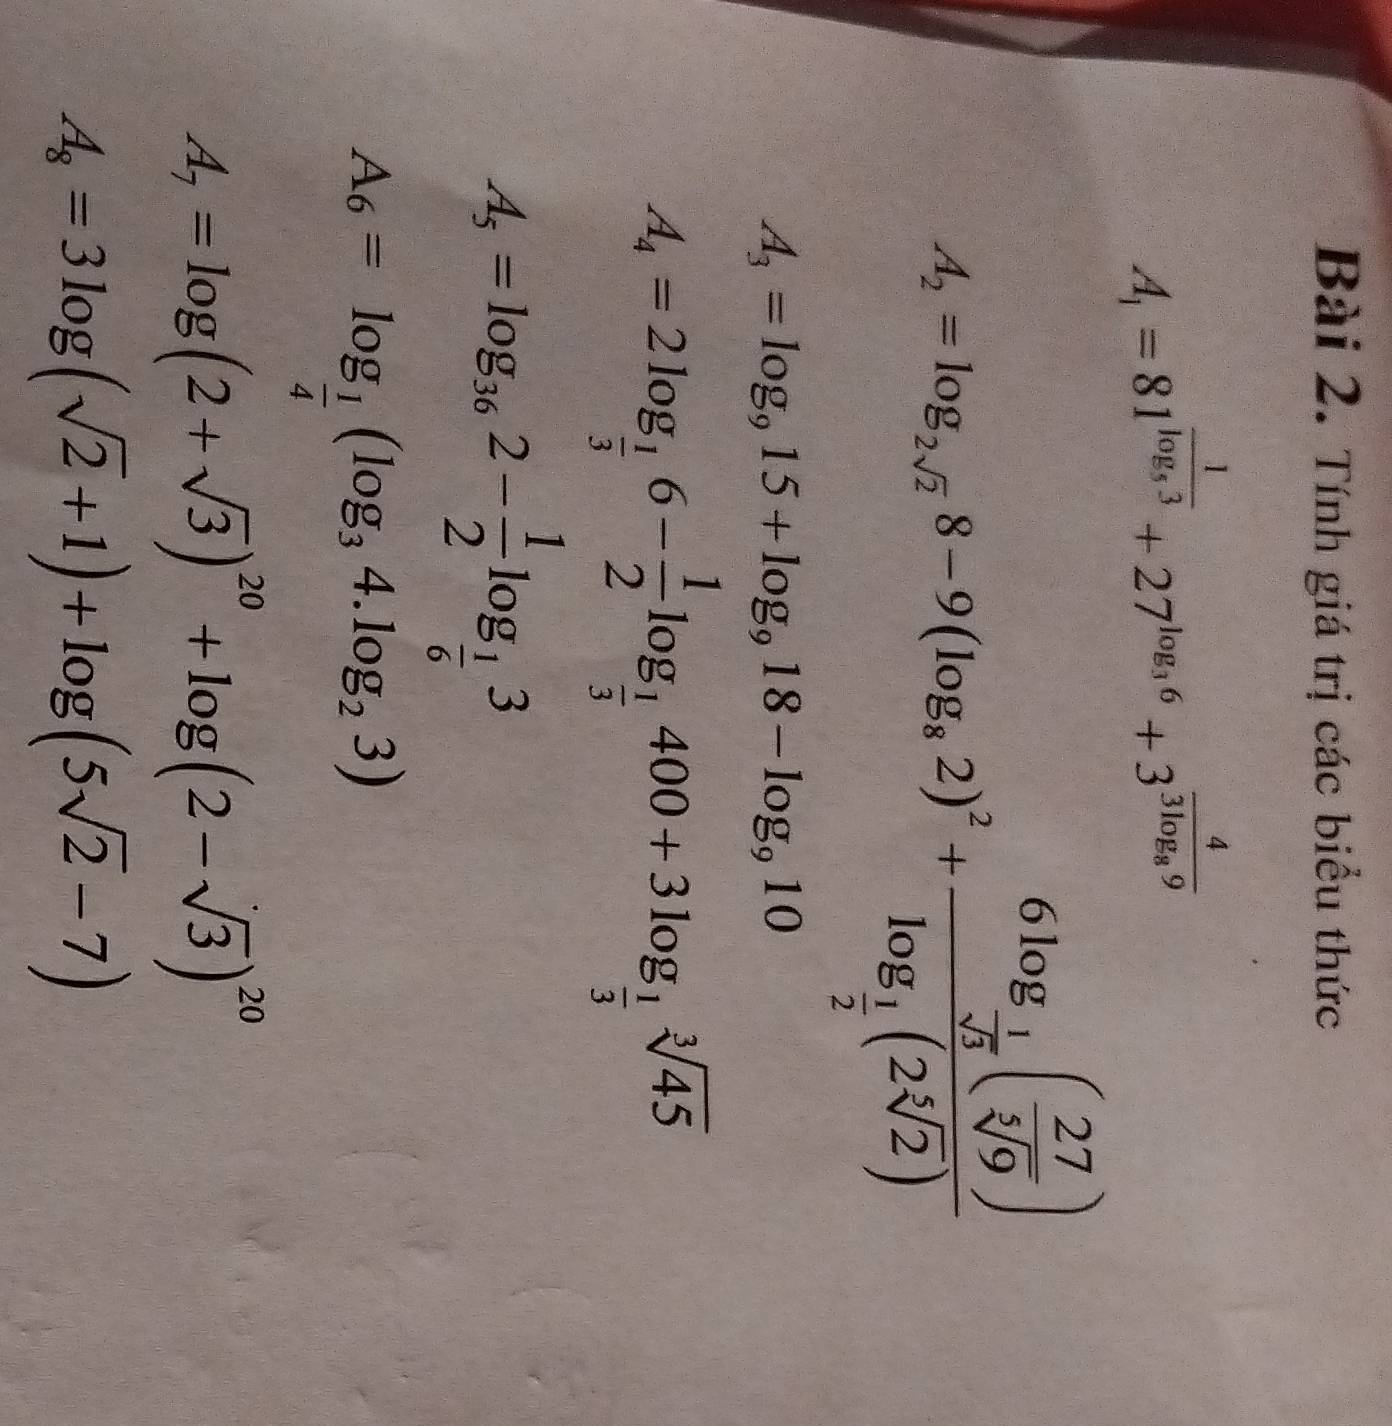 Bài 2. Tính giá trị các biểu thức
A₁ = 81^(1/log₅ 3) + 27^(log₃ 6) + 3^(4/(3 log₈ 9))
A₂ = log_(2√2) 8 − 9(log₈ 2)² + (6 log_(1/√3) (27/⁵√9))/(log_(1/2) (2⁵√2))
A₃ = log₉ 15 + log₉ 18 − log₉ 10
A₄ = 2 log_(1/3) 6 − 1/2 log_(1/3) 400 + 3 log_(1/3) ³√45
A₅ = log₃₆ 2 − 1/2 log_(1/6) 3
A₆ = log_(1/4) (log₃ 4.log₂ 3)
A₇ = log(2 + √3)²⁰ + log(2 − √3)²⁰
A₈ = 3 log(√2 + 1) + log(5√2 − 7)